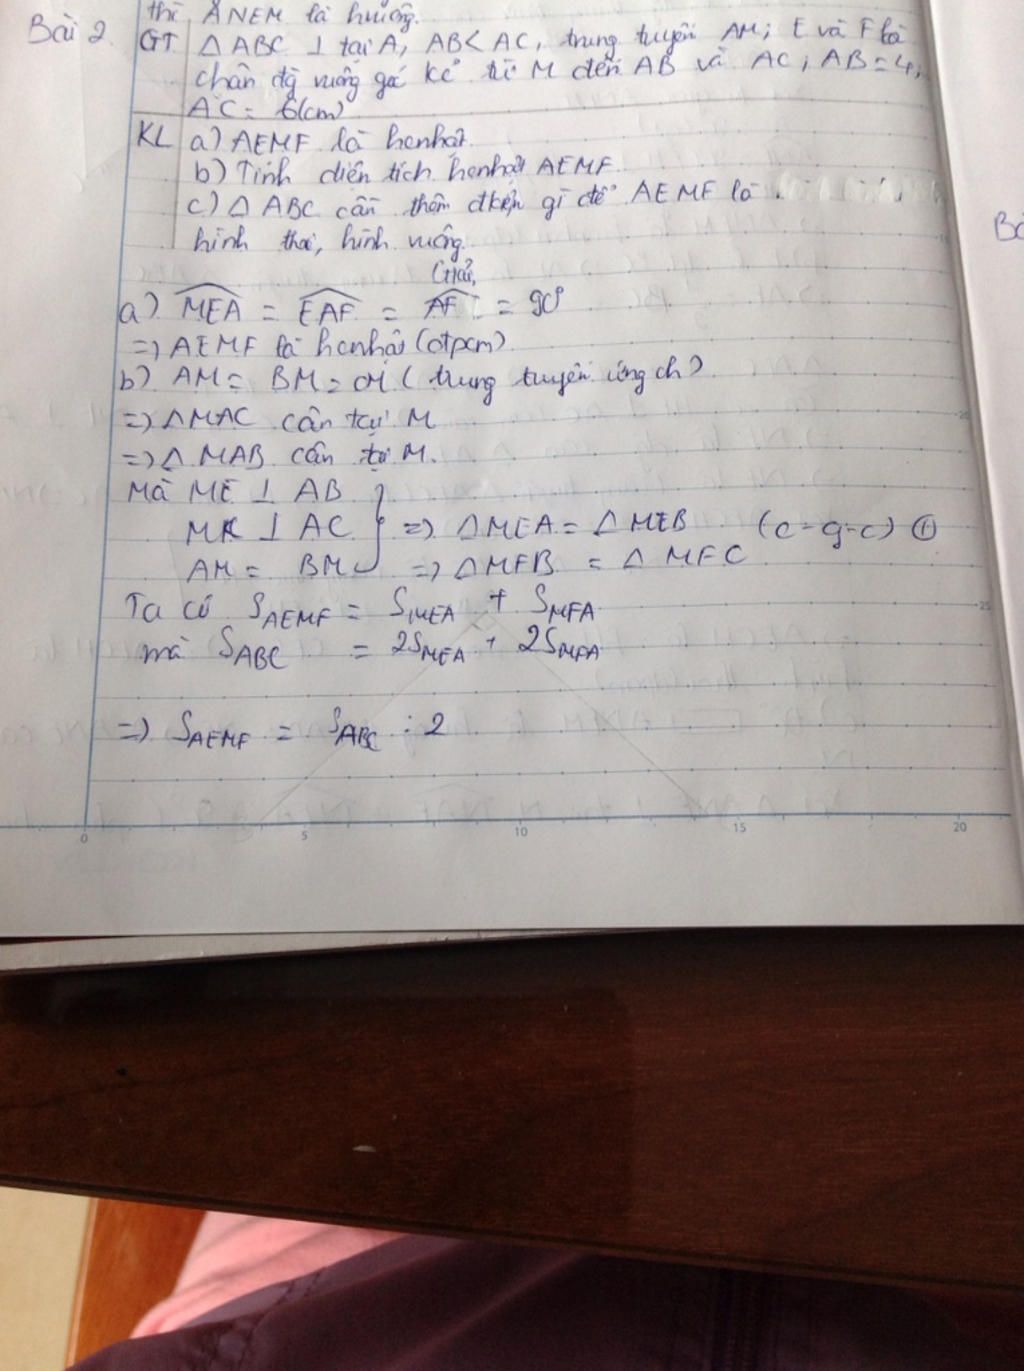 thì ANEM là hvuông.
Bài 2. GT △ABC ⊥ tại A, AB < AC, trung tuyến AM; E và F là
chân đg vuông góc kẻ từ M đến AB và AC; AB = 4;
AC = 6(cm)
KL a) AEMF là hcnhật
b) Tính diện tích hcnhật AEMF.
c) △ABC cần thêm đkiện gì để AEMF là
hình thoi, hình vuông.
Giải
a) MEA = EAF = AF = 90°
=> AEMF là hcnhật (đtpcm)
b) AM = BM = CM (trung tuyến ứng ch)
=> △MAC cân tại M
=> △MAB cân tại M.
Mà ME ⊥ AB
MK ⊥ AC } => △MEA = △MEB (c-g-c) ①
AM = BM => △MFB = △MFC
Ta có S_AEMF = S_MEA + S_MFA
mà S_ABC = 2S_MEA + 2S_MFA
=> S_AEMF = S_ABC : 2
0 5 10 15 20